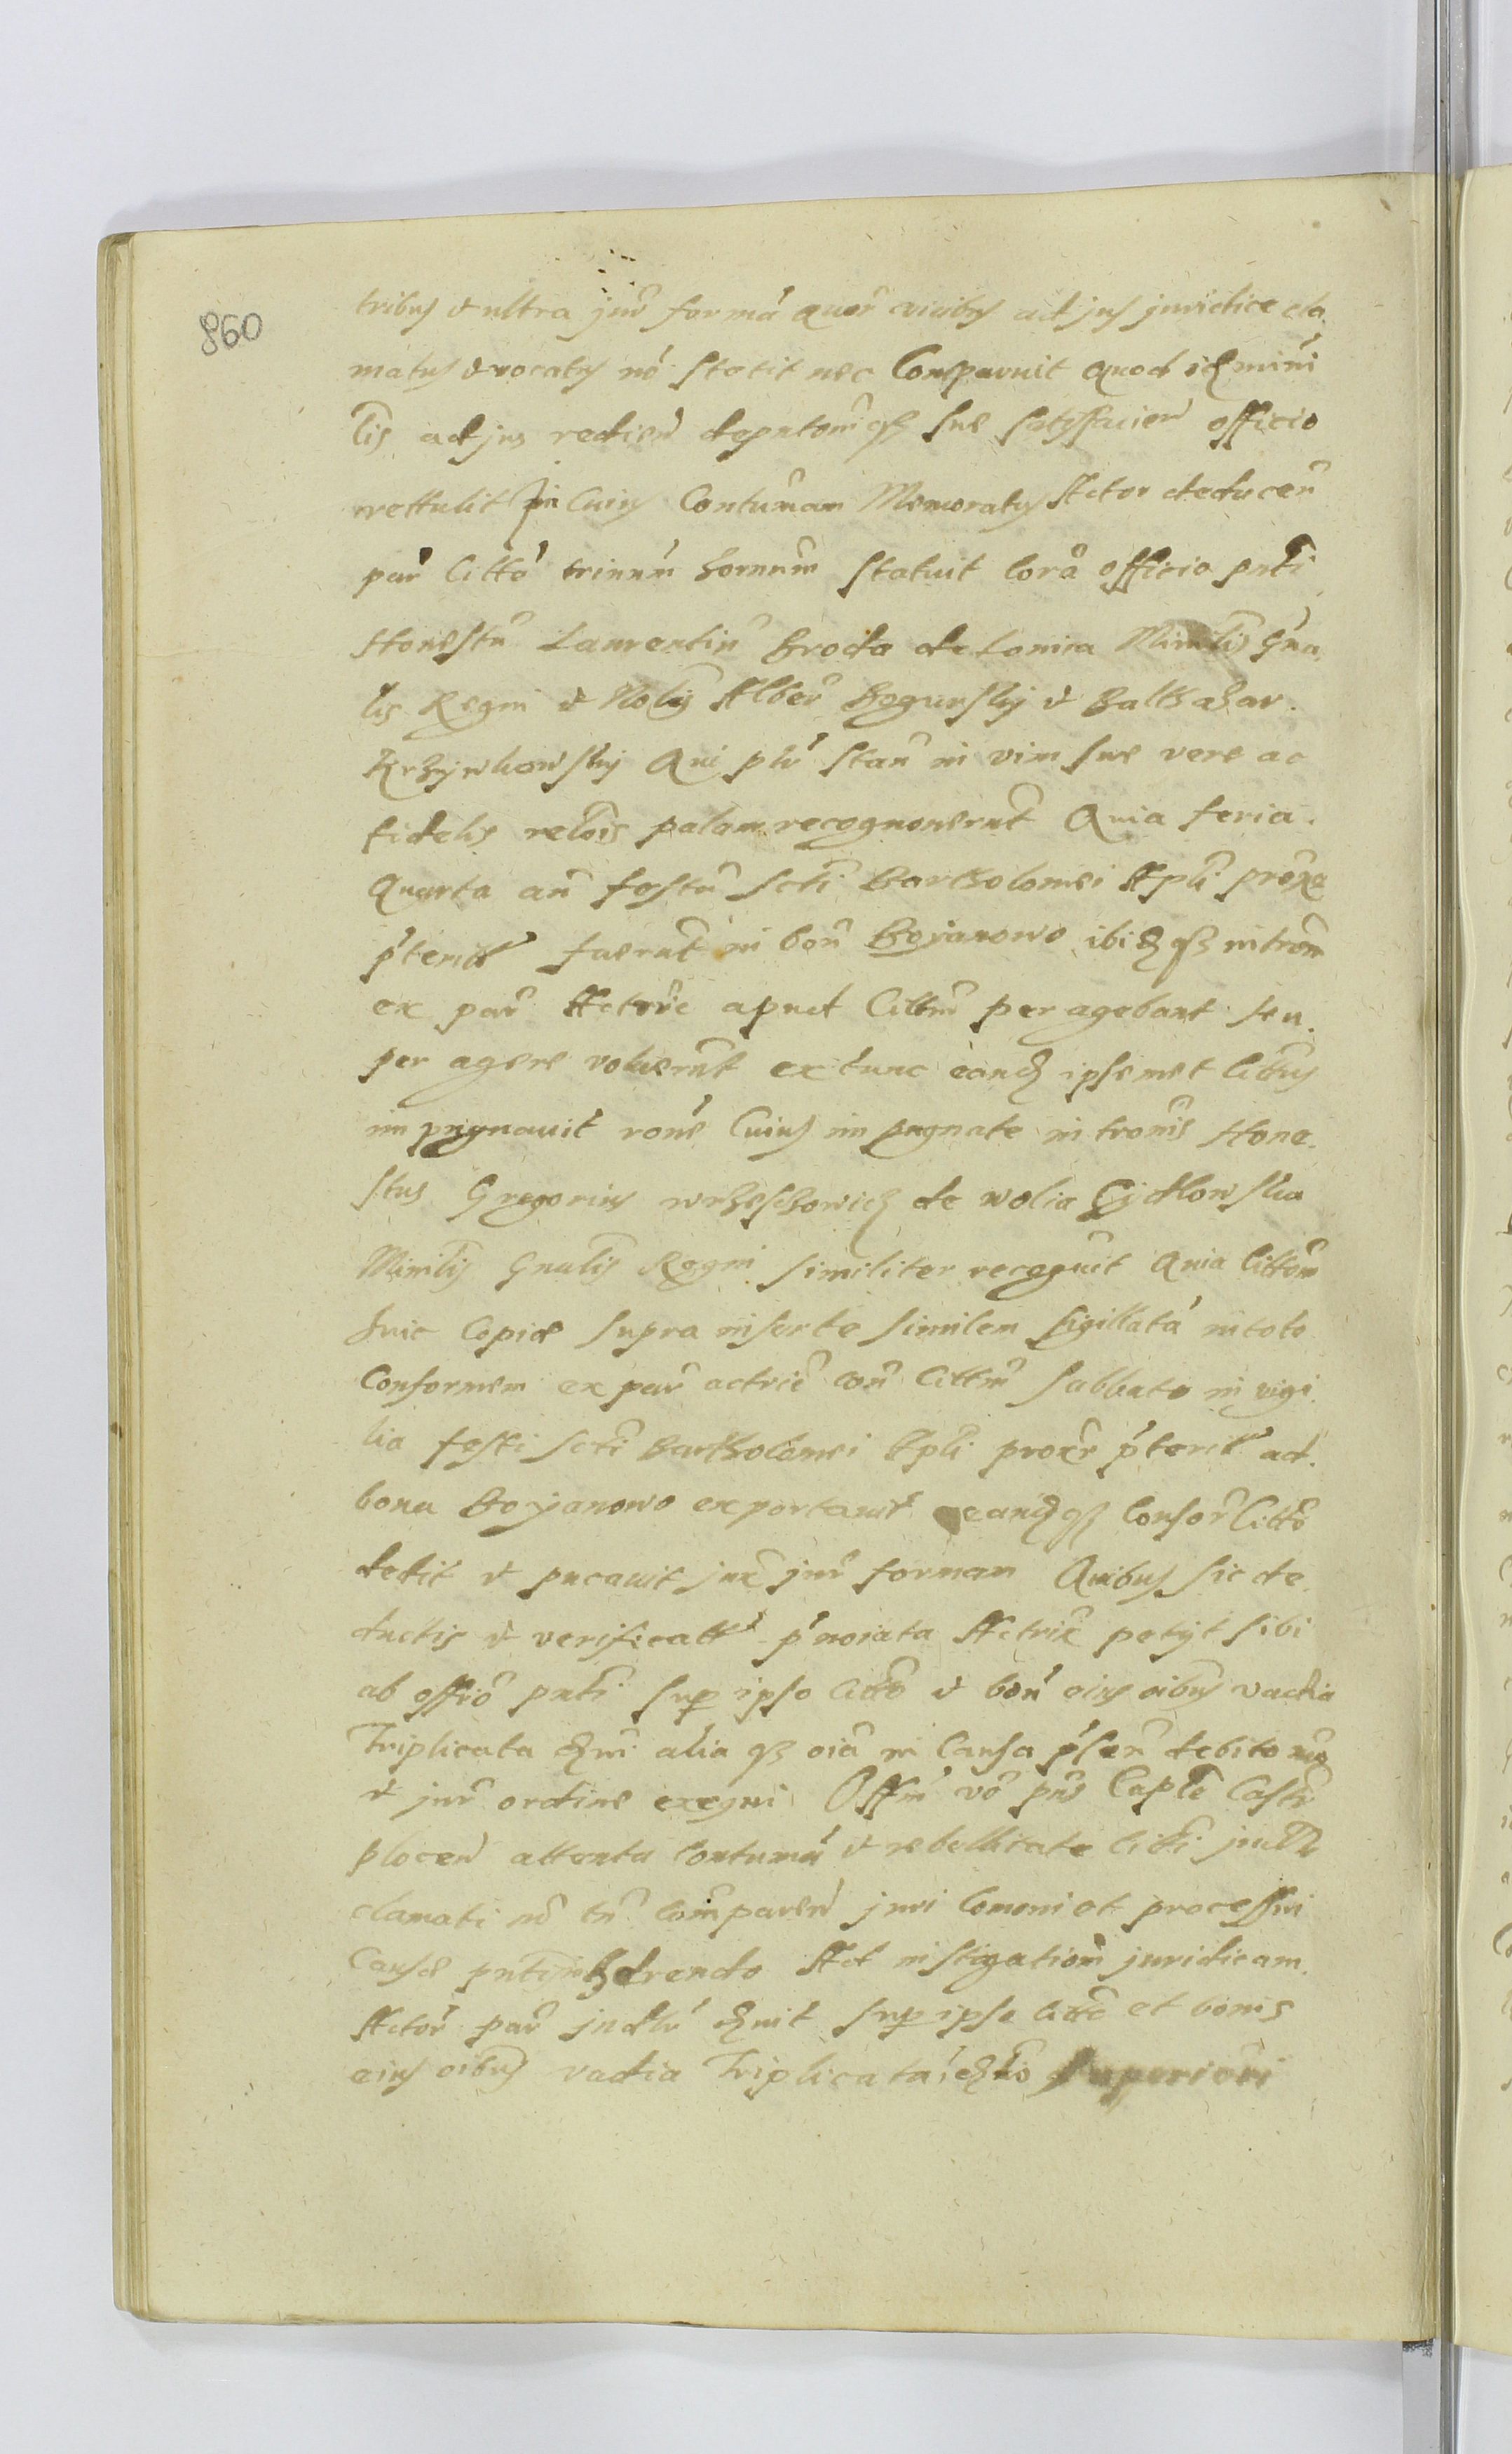 860
tribus et ultra jur formā quor vicibus ad jus juridice cla
matus et vocatus nō stetit nec Comparuit quod idem mini
lis ad jus redien deputōniqz sue satisfacien officio
rettulit In cuius Contumam Memoratus Actor deducen
par Cittā trinum bonum statuit Corā officio pnti
Honestū Laurentiū Broda de Lomia Minilis Gna
lis Regni et Nobis Alber Bogurskij et Balthazar
Krzynkowskij Qui plr stan in vim sue vere ac
fidelis relōis palam recognouerunt Quia feria
quarta an festū scti Bartholomei Apli proxe
pterit fuerunt in bon Boyanowo ibidqz introm
ex par Actric apud Cittm peragebant seu
per agere voluerunt extunc eand ipsemet Cittus
impugnauit rone Cuius impugnate intromis Hone
stus Gregorius de wolia
Minilis Gnalis Regni similiter recognuit Quia Cittōm
huic Copie supra inserte similem sigillatā in toto
Conformem ex par actric con Cittm sabbato in vigi
lia festi scti Bartholomei Apli proxr pterit ad
bona Boyanowo exportauit eandqz Consor Citto
dedit et pucauit jux jur formam Quibus sic de
ductis et verificatt pnoiata Actrix petijt sibi
ab offio pnti sup ipso Citto et bon eius oibus vadia
Triplicata dni alia qz oiā in Causa plen debito mo
et jur ordine exequi Offm vō pns Capte Castr
plocen attenta Contumā et rebellitate Citti
clamati nō tn comparen juri Comoni et processui
Cause pnti inhedrendo Ad instigationem juridicam
Actor par dnit sup ipso Citto et bonis
eius oibus vadia Triplicata superiori